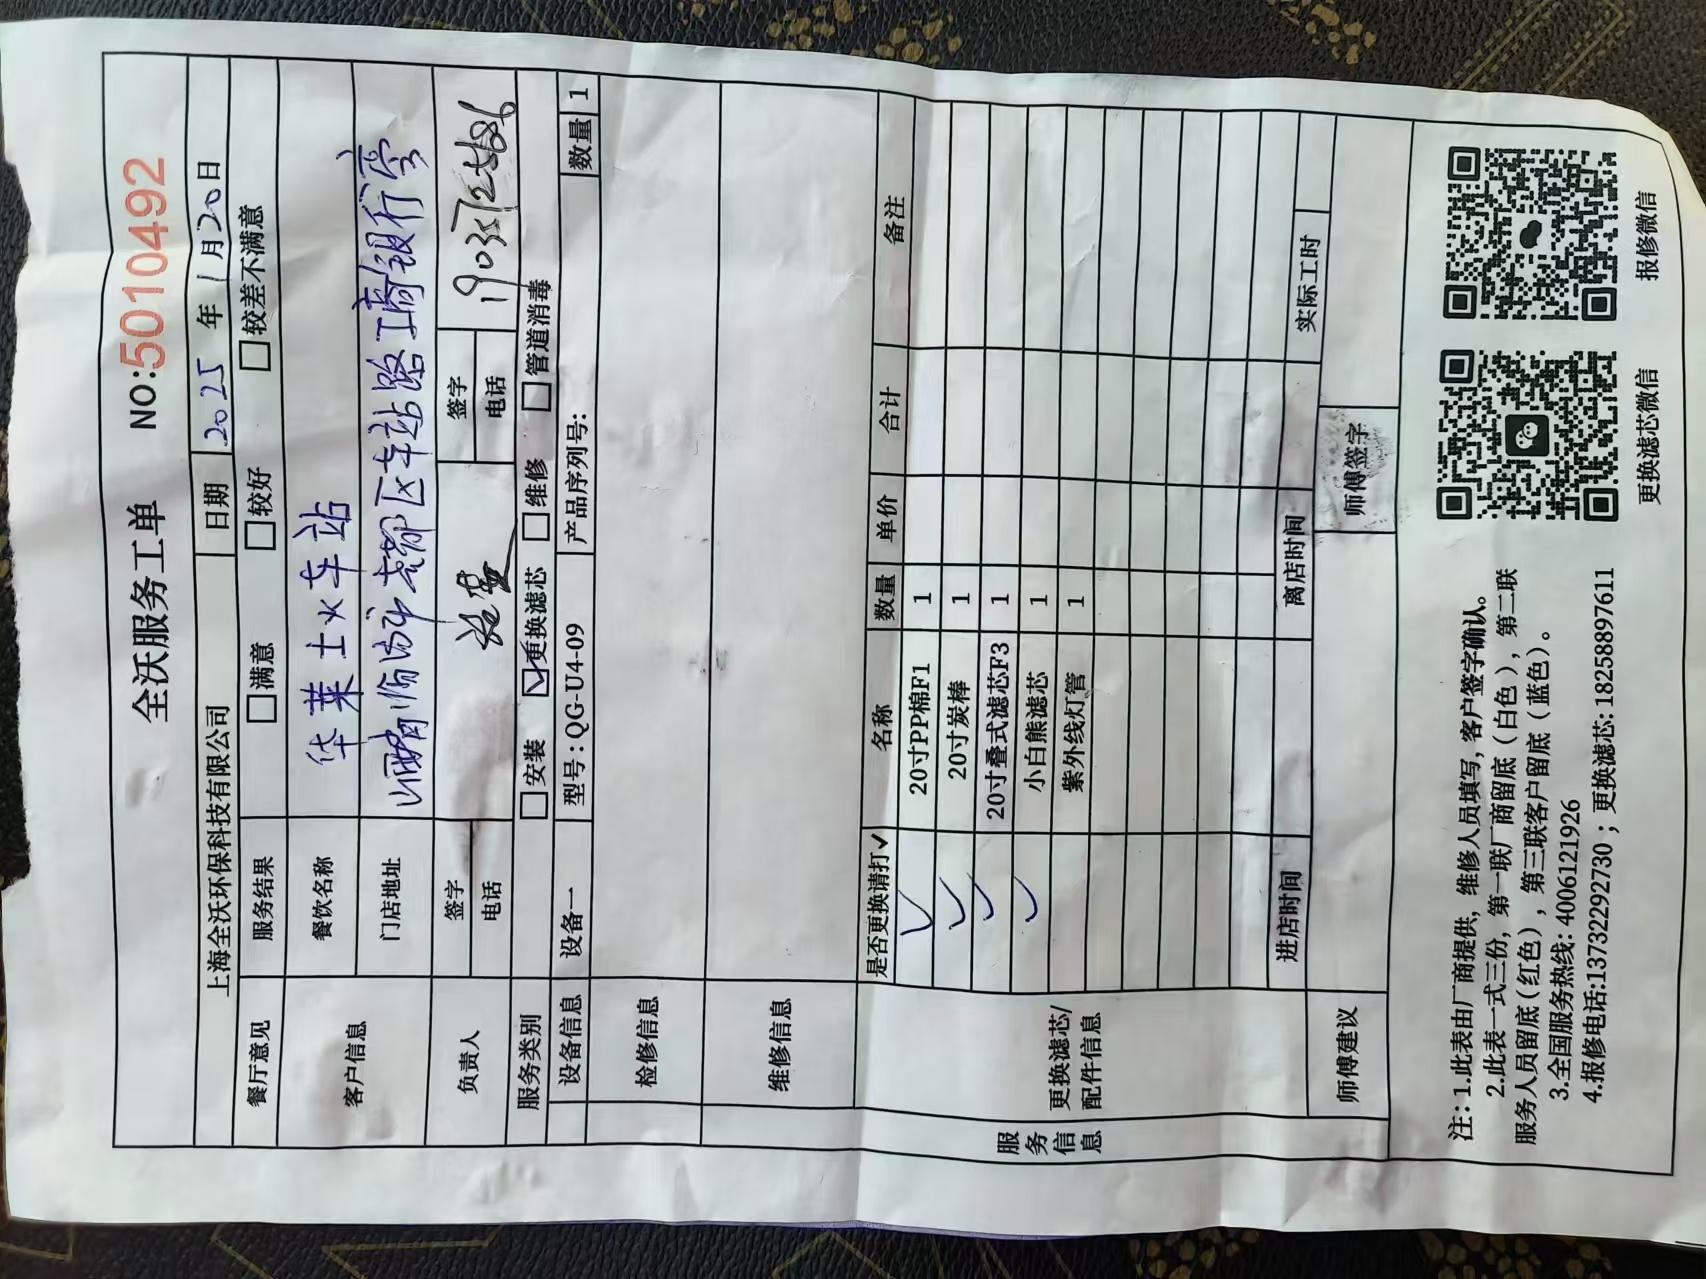 全沃服务工单 NO:5010492
上海全沃环保科技有限公司 日期 2025 年 1 月 20 日
餐厅意见 服务结果 □满意 □较好 □较差不满意
客户信息 餐饮名称 华莱士火车站
门店地址 市尧都区车站路工商银行旁
负责人 签字 签字
电话 电话 19035725886
服务类别 □安装 ☑更换滤芯 □维修 □管道消毒
设备信息 设备一 型号:QG-U4-09 产品序列号: 数量 1
检修信息
维修信息
服务信息
更换滤芯/配件信息
是否更换请打✓ 名称 数量 单价 合计 备注
✓ 20寸PP棉F1 1
✓ 20寸炭棒 1
✓ 20寸叠式滤芯F3 1
✓ 小白熊滤芯 1
紫外线灯管 1
进店时间 离店时间 实际工时
师傅建议 师傅签字
注:1.此表由厂商提供,维修人员填写,客户签字确认。
2.此表一式三份,第一联厂商留底(白色),第二联
服务人员留底(红色),第三联客户留底(蓝色)。
3.全国服务热线:4006121926
4.报修电话:13732292730;更换滤芯:18258897611
更换滤芯微信 报修微信